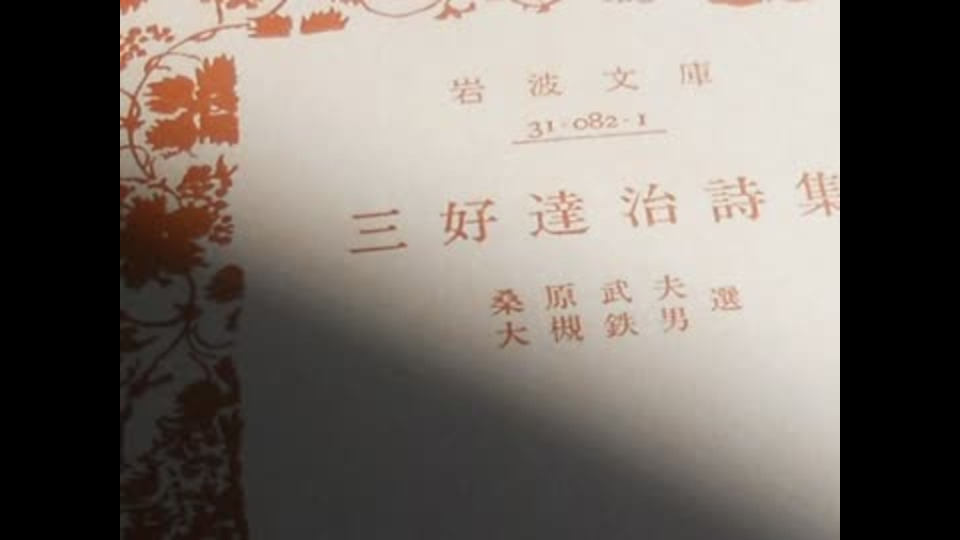 岩波文庫
31-082-1
三好達治詩集
桑原武夫
大槻鉄男 選